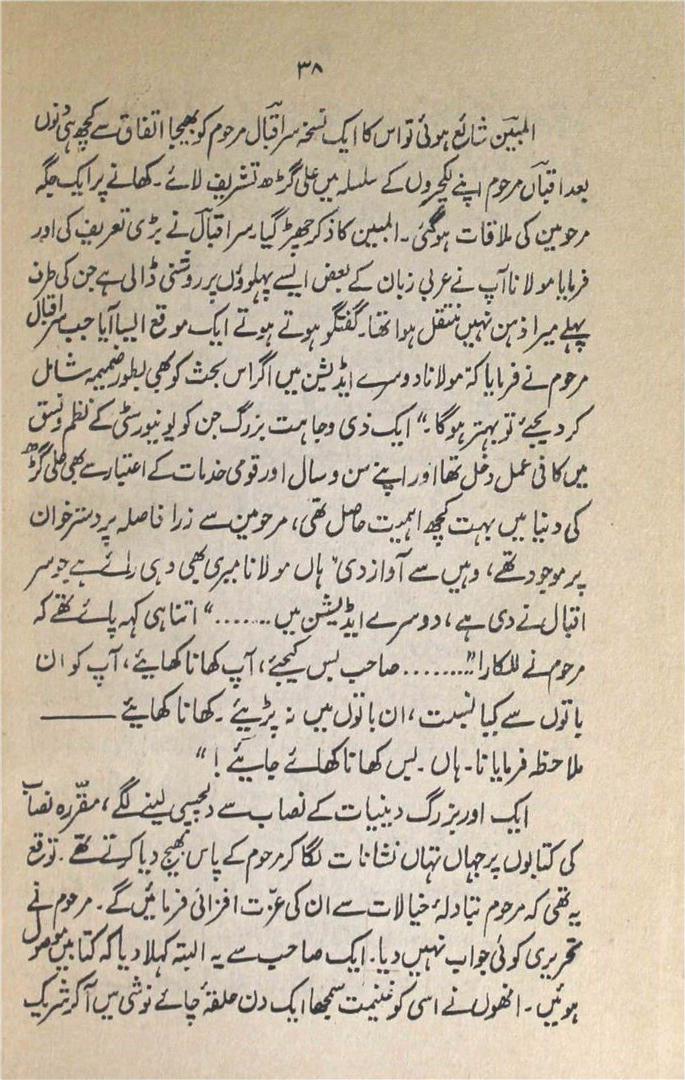 ۳۸
المبین شائع ہوئی تو اس کا ایک نسخہ سر اقبالؔ مرحوم کو بھیجا اتفاق سے کچھ ہی دنوں
بعد اقبالؔ مرحوم اپنے لکچروں کے سلسلہ میں علی گڑھ تشریف لائے۔ کھانے پر ایک جگہ
مرحومین کی ملاقات ہوگئی۔ المبین کا ذکر چھڑ گیا۔ سر اقبالؔ نے بڑی تعریف کی اور
فرمایا مولانا آپ نے عربی زبان کے بعض ایسے پہلوؤں پر روشنی ڈالی ہے جن کی طرف
پہلے میرا ذہن نہیں منتقل ہوا تھا۔ گفتگو ہوتے ہوتے ایک موقع ایسا آیا جب سر اقبال
مرحوم نے فرمایا کہ مولانا دوسرے ایڈیشن میں اگر اس بحث کو بھی بطور ضمیمہ شامل
کر دیجئے تو بہتر ہوگا۔" ایک ذی وجاہت بزرگ جن کو یونیورسٹی کے نظم و نسق
میں کافی عمل دخل تھا اور اپنے سن و سال اور قومی خدمات کے اعتبار سے بھی علی گڑھ
کی دنیا میں بہت کچھ اہمیت حاصل تھی، مرحومین سے ذرا فاصلہ پر دسترخوان
پر موجود تھے، وہیں سے آواز دی" ہاں مولانا میری بھی وہی رائے ہے جو سر
اقبال نے دی ہے، دوسرے ایڈیشن میں ......." اتنا ہی کہہ پائے تھے کہ
مرحوم نے للکارا" ......... صاحب بس کیجئے، آپ کھانا کھایئے، آپ کو ان
باتوں سے کیا نسبت، ان باتوں میں نہ پڑیئے۔ کھانا کھایئے ———
ملاحظہ فرمایا نا۔ ہاں۔ بس کھانا کھائے جایئے! "
ایک اور بزرگ دینیات کے نصاب سے دلچسپی لینے لگے، مقررہ نصاب
کی کتابوں پر جہاں تہاں نشانات لگا کر مرحوم کے پاس بھیج دیا کرتے تھے۔ توقع
یہ تھی کہ مرحوم تبادلۂ خیالات سے ان کی عزّت افزائی فرمائیں گے۔ مرحوم نے
تحریری کوئی جواب نہیں دیا۔ ایک صاحب سے یہ البتہ کہلا دیا کہ کتابیں موصول
ہوئیں۔ انھوں نے اسی کو غنیمت سمجھا ایک دن حلقۂ چائے نوشی میں آکر شریک